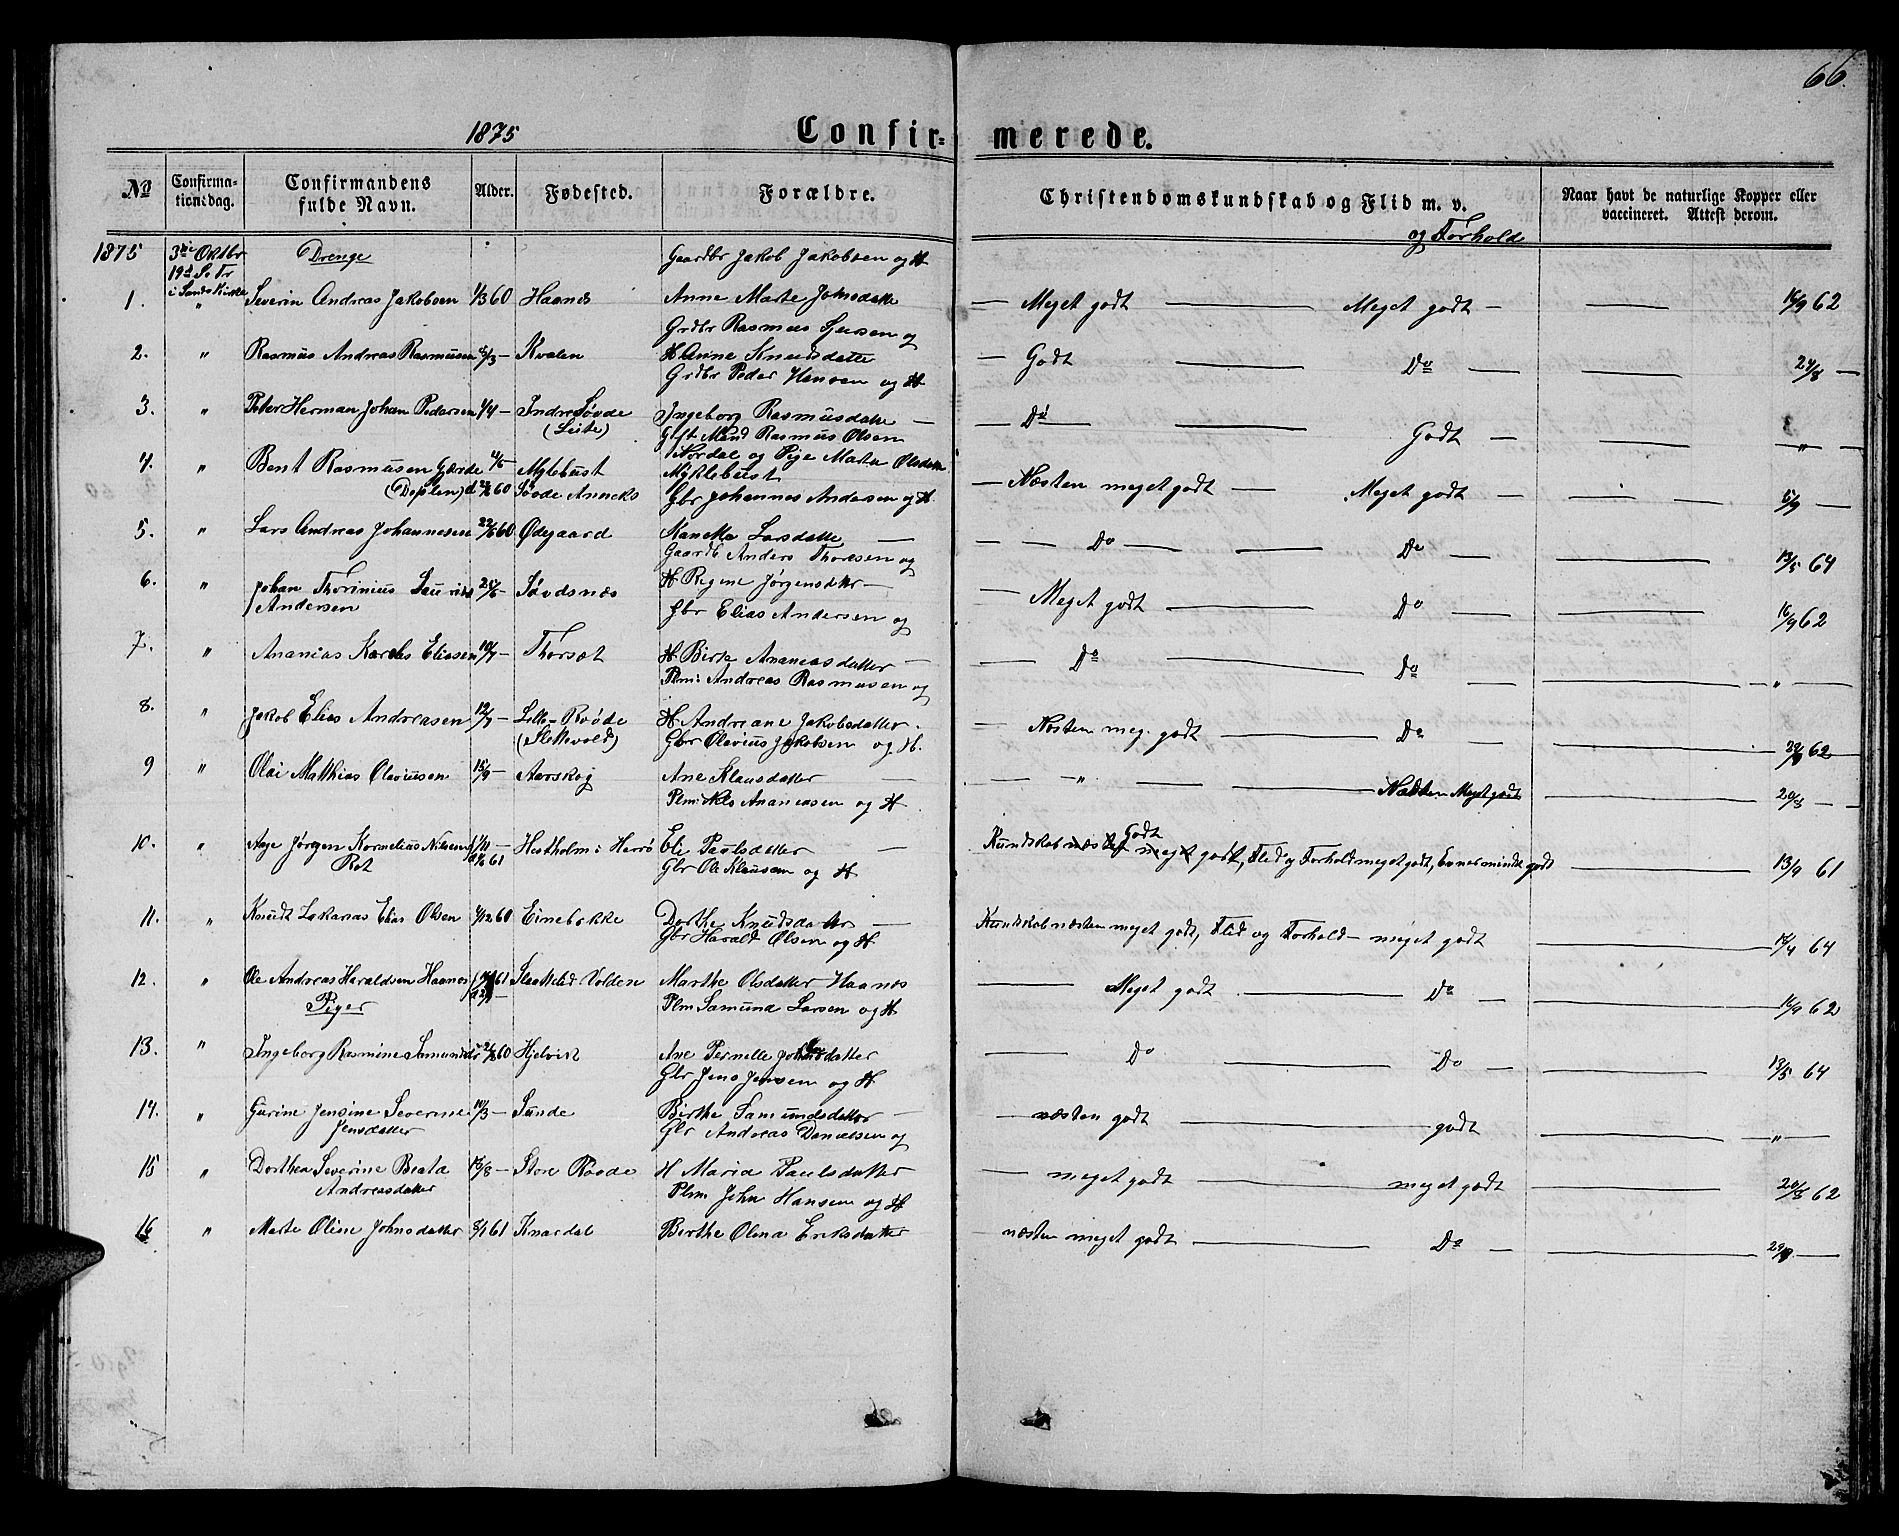 66.
1875 Confir- merede.
No Confirma-tionsdag. Confirmandens fulde Navn. Alder. Fødested. Forældre. Christendomskundskab og Flid m. v. og Forhold Naar havt de naturlige Kopper eller vaccineret. Attest derom.
1875 3die Oktbr Drenge Gaardbr Jakob Jakobsen og H
19d S. Tr
i Sands Kirke
1. " Severin Andreas Jakobsen 1/3 60 Haanes Anne Marte Johnsdatter — Meget godt — Meget godt — 16/9 62
Grdbr Rasmus Sjursen og
2. " Rasmus Andreas Rasmusen 5/3 — Kvalen H Anne Knudsdatter — Godt — Do — 24/8 —
Grdbr Peder Hansen og H
3. " Peter Herman Johan Pedersen 1/4 — Indre Søvde Ingeborg Rasmusdatter — Do — Godt — " —
(Leite) Gift Mand Rasmus Olsen
Nordal og Pige Marte Olsdatter
4. " Bent Rasmusen Gjerde 4/5 — Myklebust Myklebust — Næsten meget godt — Meget godt — 5/9 —
(Døplen) d 60 Søvde Anneks Gbr Johannes Andersen og H
5. " Lars Andreas Johannesen 22/5 60 Ødegaard Nanette Larsdatter — Do — Do — 13/5 64
Gaardb Anders Thoresen og
6. " Johan Thorinius Laurits 25/5 — Søvdsnæs H Regine Jørgensdatter — Meget godt — Do — 16/9 62
Andersen Gbr Elias Andersen og
7. " Ananias Karolus Eliasen 10/7 — Thorsæt H Birte Ananiasdatter — Do — Do — " —
Plm: Andreas Rasmusen og
8. " Jakob Elias Andreasen 12/7 — Lille-Røvde H Andreane Jakobsdatter — Næsten meg. godt — Do — 62
(Slettevold) Gbr Olavius Jakobsen og H.
9 " Olai Matthias Olaviusen 15/9 — Aarskog Ane Klausdatter — " — Næsten Meget godt — 20/8 —
Plm: Nils Ananiasen og H
10. " Aage Jørgen Kornelius Nilsen — Hestholm i Herrø Eli Paulsdatter — Kundskab Godt, Flid og Forhold meget godt, Evner mindre godt — 13/9 61
Rot 61 Gbr Ole Klausen og H
11. " Knudt Lakarias Elias Olsen 4/12 60 Einebøkke Dorthe Knudsdatter — Kundskab næsten meget godt, Flid og Forhold — meget godt — 14/4 64
Gbr Harald Olsen og H
12. " Ole Andreas Haraldsen Haanes 61 Slaattelid Volden Marthe Olsdatter Haanes — Meget godt — Do — 16/9 62
Piger Plm Samund Larsen og H
13. " Ingeborg Rasmine Samundsdtr 60 Hjelvik Ane Pernelle datter — Do — Do — 13/5 64
Gbr Jens Jensen og H
14. " Gurine Jensine Severine 10/3 — Sunde Birthe Samundsdatter — næsten godt — godt — " —
Jensdatter Gbr Andreas Danielsen og
15 " Dorthea Severine Beata 15/8 — Store Røvde H Maria Paulsdatter — meget godt — meget godt — 20/8 62
Andreasdatter Plm. John Hansen og H
16 " Marte Oline Johnsdatter 8/1 61 Knardal Berthe Olina Eriksdatter — næsten meget godt — Do —